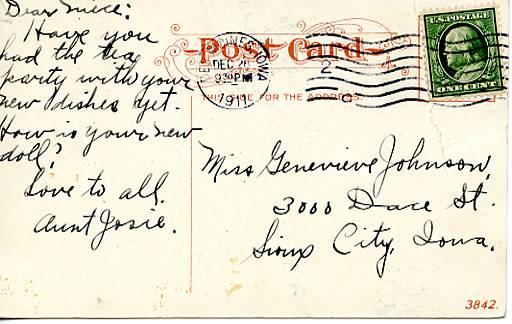 Dear Niece:
Have you
had the tea
party with your
new dishes yet.
How is your new
doll?
Love to all.
Aunt Josie.
Post Card
THIS SIDE FOR THE ADDRESS.
MOINES, IOWA
DEC 26
930 PM
1911
2
C
U.S. POSTAGE
ONE CENT
Miss Genevieve Johnson,
3000 Dace St.
Sioux City, Iowa.
3842.